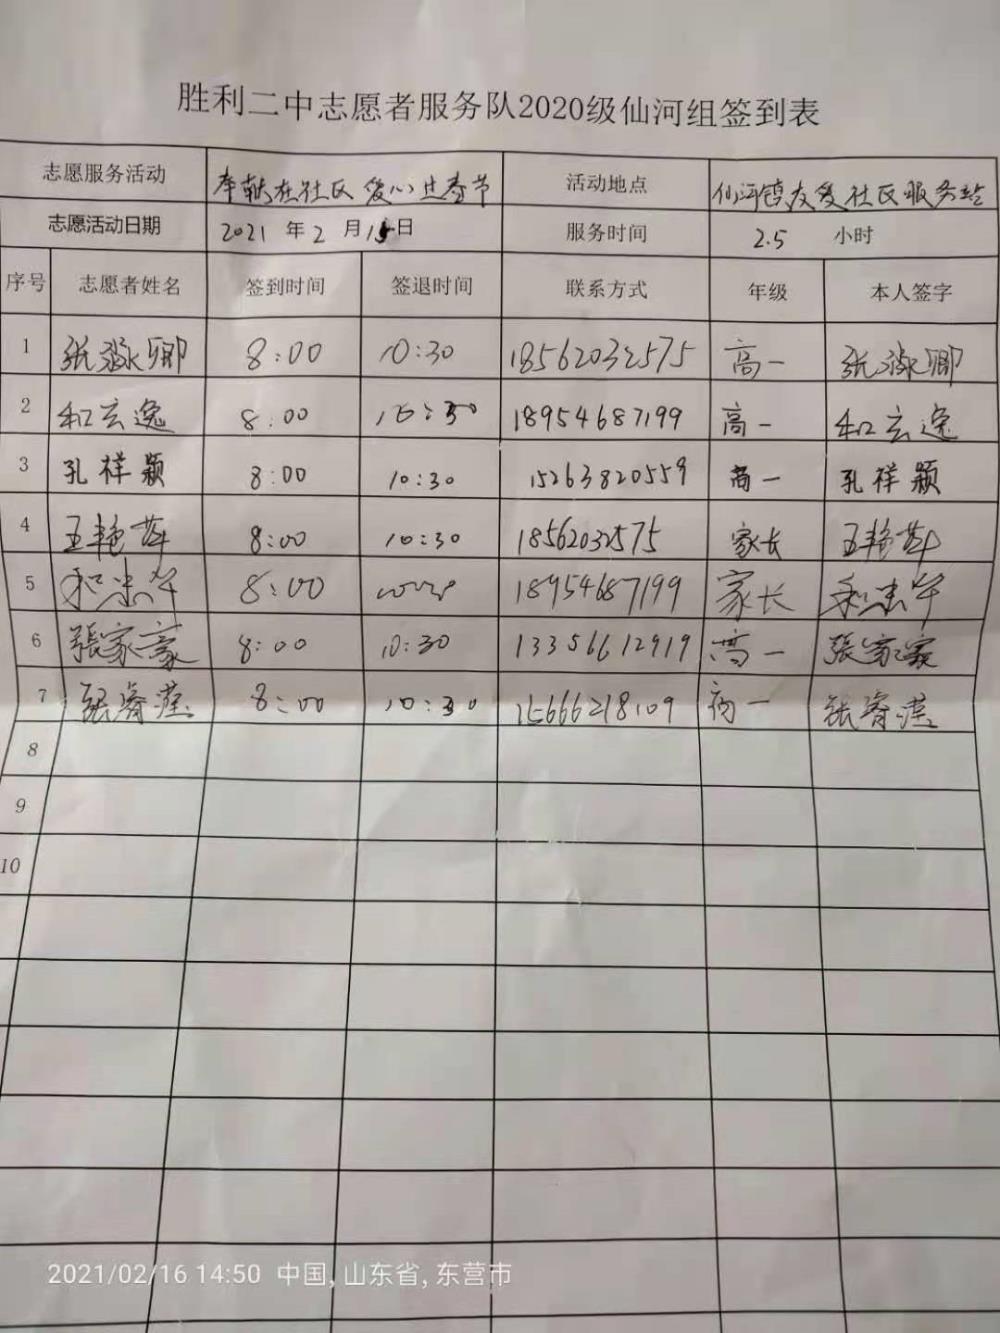 胜利二中志愿者服务队2020级仙河组签到表
志愿服务活动 奉献在社区 爱心过春节 活动地点 仙河镇友爱社区服务站
志愿活动日期 2021 年 2 月 15 日 服务时间 2.5 小时
序号 志愿者姓名 签到时间 签退时间 联系方式 年级 本人签字
1 张淼卿 8:00 10:30 18562032575 高一 张淼卿
2 和玄逸 8:00 10:30 18954687199 高一 和玄逸
3 孔祥颖 8:00 10:30 15263820559 高一 孔祥颖
4 王艳萍 8:00 10:30 18562032575 家长 王艳萍
5 和 8:00 18954687199 家长 和
6 張家豪 8:00 10:30 13356612919 高一 張家豪
7 张睿滢 8:00 10:30 15666218109 高一 张睿滢
8
9
10
2021/02/16 14:50 中国, 山东省, 东营市